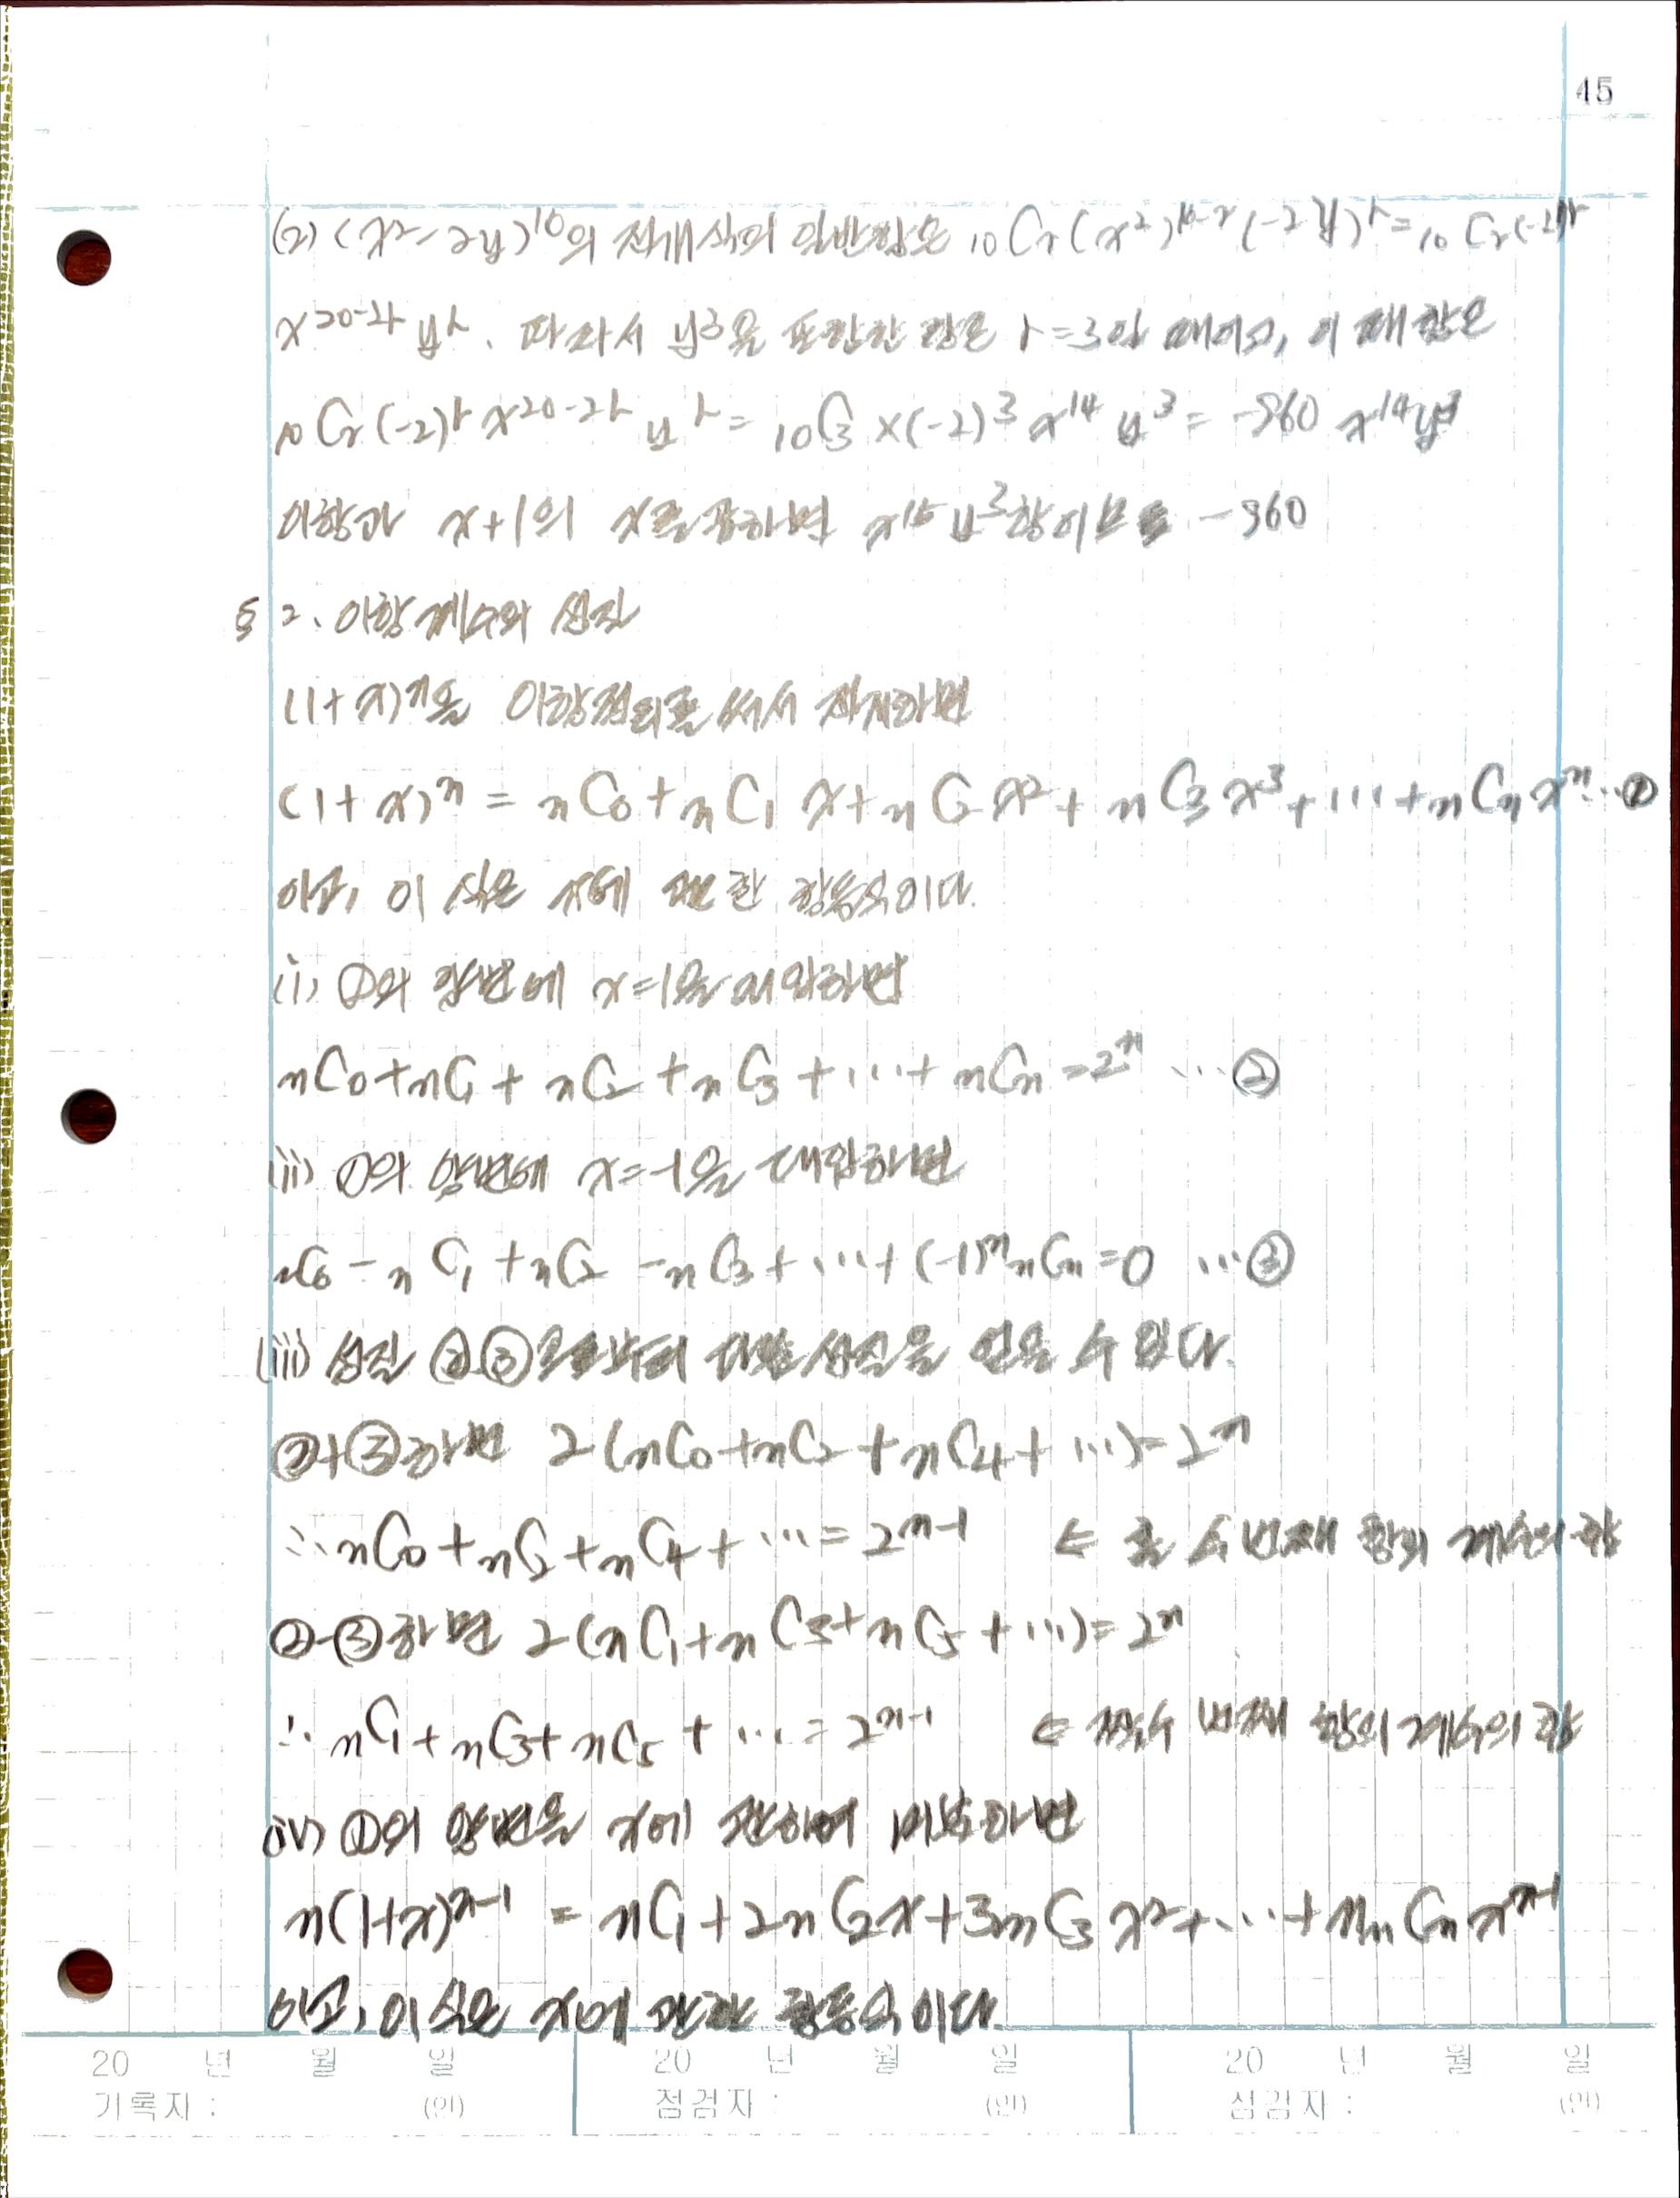 45
(2) (x²-2y)¹⁰의 전개식의 일반항은 ₁₀Cᵣ(x²)¹⁰⁻ʳ(-2y)ʳ=₁₀Cᵣ(-2)ʳ
x²⁰⁻²ʳyʳ. 따라서 y³을 포함한 항은 r=3일 때이고, 이 때 항은
₁₀Cᵣ(-2)ʳx²⁰⁻²ʳyʳ=₁₀C₃×(-2)³x¹⁴y³=-960x¹⁴y³
이항과 x+1의 x를 곱하면 x¹⁵y³항이므로 -960
§2. 이항계수의 성질
(1+x)ⁿ을 이항정리를 써서 전개하면
(1+x)ⁿ=ₙC₀+ₙC₁x+ₙC₂x²+ₙC₃x³+…+ₙCₙxⁿ…①
이고, 이 식은 x에 관한 항등식이다.
(i) ①의 양변에 x=1을 대입하면
ₙC₀+ₙC₁+ₙC₂+ₙC₃+…+ₙCₙ=2ⁿ …②
(ii) ①의 양변에 x=-1을 대입하면
ₙC₀-ₙC₁+ₙC₂-ₙC₃+…+(-1)ⁿₙCₙ=0 …③
(iii) 성질 ②③로부터 다음 성질을 얻을 수 있다.
②+③하면 2(ₙC₀+ₙC₂+ₙC₄+…)=2ⁿ
∴ₙC₀+ₙC₂+ₙC₄+…=2ⁿ⁻¹ ← 홀수 번째 항의 계수의 합
②-③하면 2(ₙC₁+ₙC₃+ₙC₅+…)=2ⁿ
∴ₙC₁+ₙC₃+ₙC₅+…=2ⁿ⁻¹ ← 짝수 번째 항의 계수의 합
(iv) ①의 양변을 x에 관하여 미분하면
n(1+x)ⁿ⁻¹=ₙC₁+2ₙC₂x+3ₙC₃x²+…+nₙCₙxⁿ⁻¹
이고, 이 식은 x에 관한 항등식이다.
20 년 월 일 20 년 월 일 20 년 월 일
기록자 : (인) 점검자 : (인) 점검자 : (인)